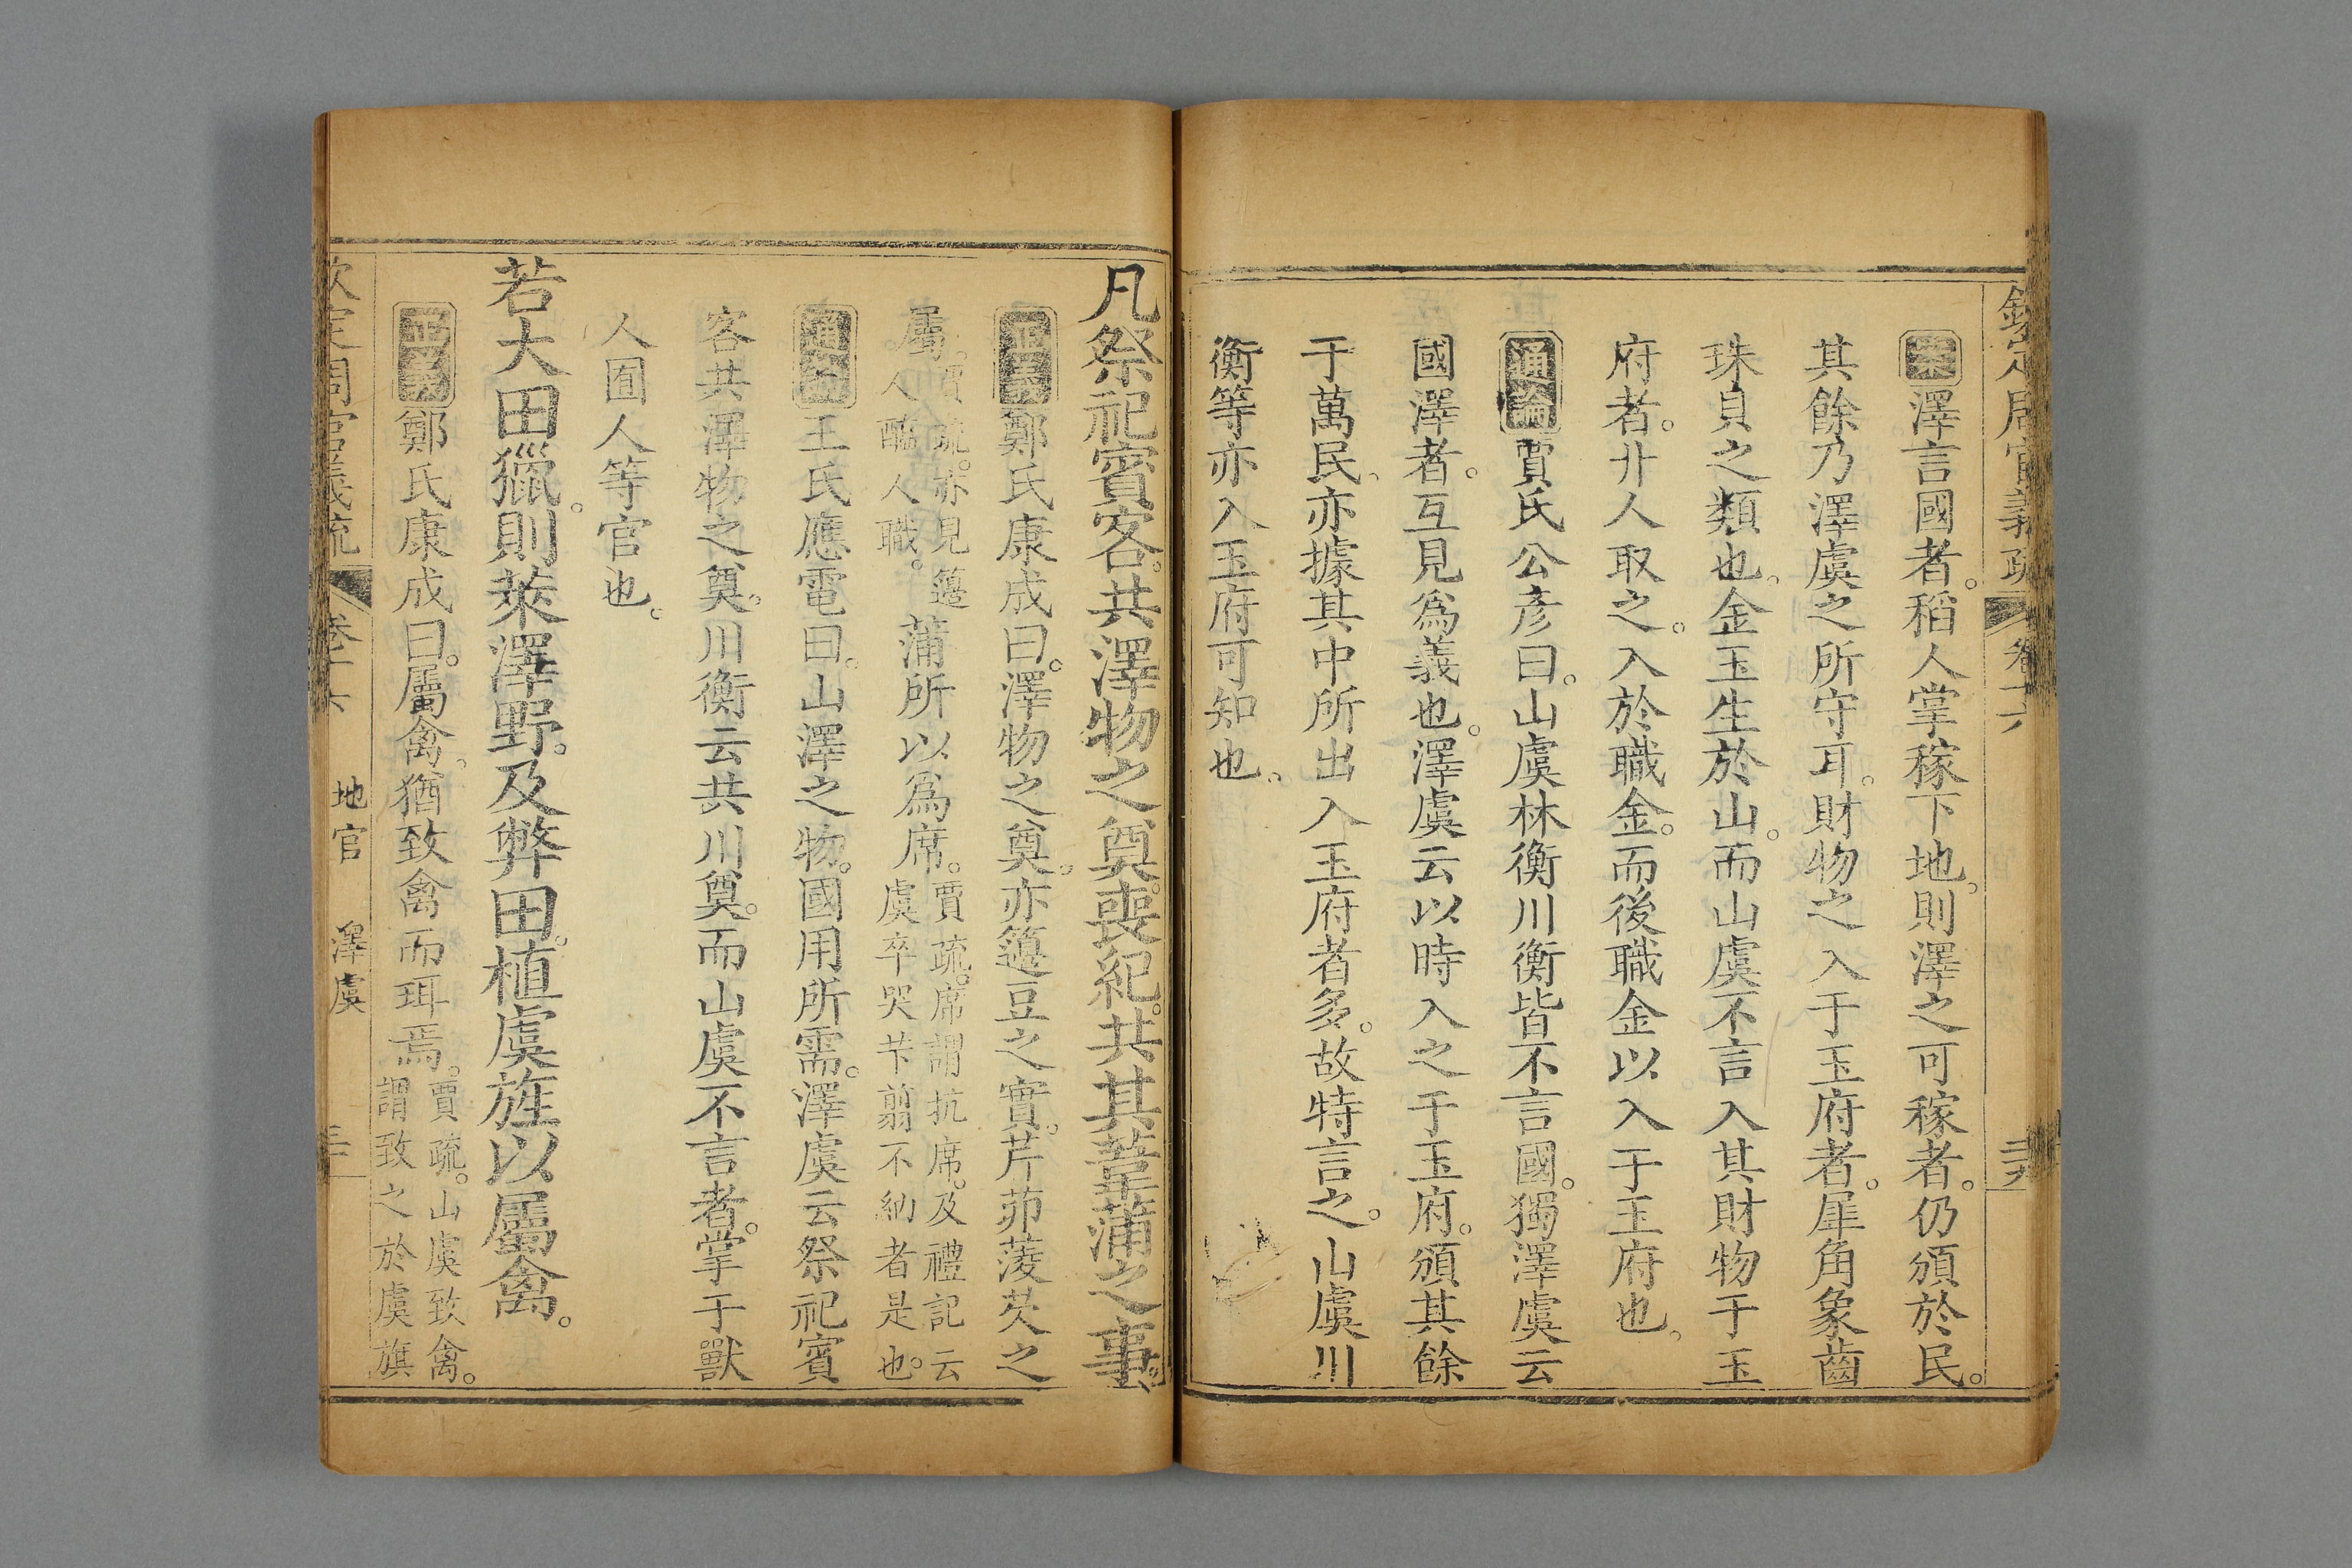 欽定周官義疏 卷十六
案澤言國者。稻人掌稼下地。則澤之可稼者。仍頒於民。
其餘乃澤虞之所守耳。財物之入于玉府者。犀角象齒
珠貝之類也。金玉生於山。而山虞不言入其財物于玉
府者。丱人取之。入於職金。而後職金以入于玉府也。
通論賈氏公彥曰。山虞林衡川衡皆不言國。獨澤虞云
國澤者。互見爲義也。澤虞云以時入之于玉府。頒其餘
于萬民。亦據其中所出入玉府者多。故特言之。山虞川
衡等亦入玉府可知也。
凡祭祀賓客。共澤物之奠。喪紀。共其葦蒲之事。
正義鄭氏康成曰。澤物之奠。亦籩豆之實。芹茆蔆芡之
屬。賈疏。亦見籩
人醢人職。蒲所以爲席。賈疏。席謂抗席。及禮記云
虞卒哭苄翦不納者是也。
通論王氏應電曰。山澤之物。國用所需。澤虞云祭祀賓
客共澤物之奠。川衡云共川奠。而山虞不言者。掌于獸
人囿人等官也。
若大田獵。則萊澤野。及弊田。植虞旌以屬禽。
正義鄭氏康成曰。屬禽。猶致禽而珥焉。賈疏。山虞致禽。
謂致之於虞旗
欽定周官義疏 卷十六 地官 澤虞